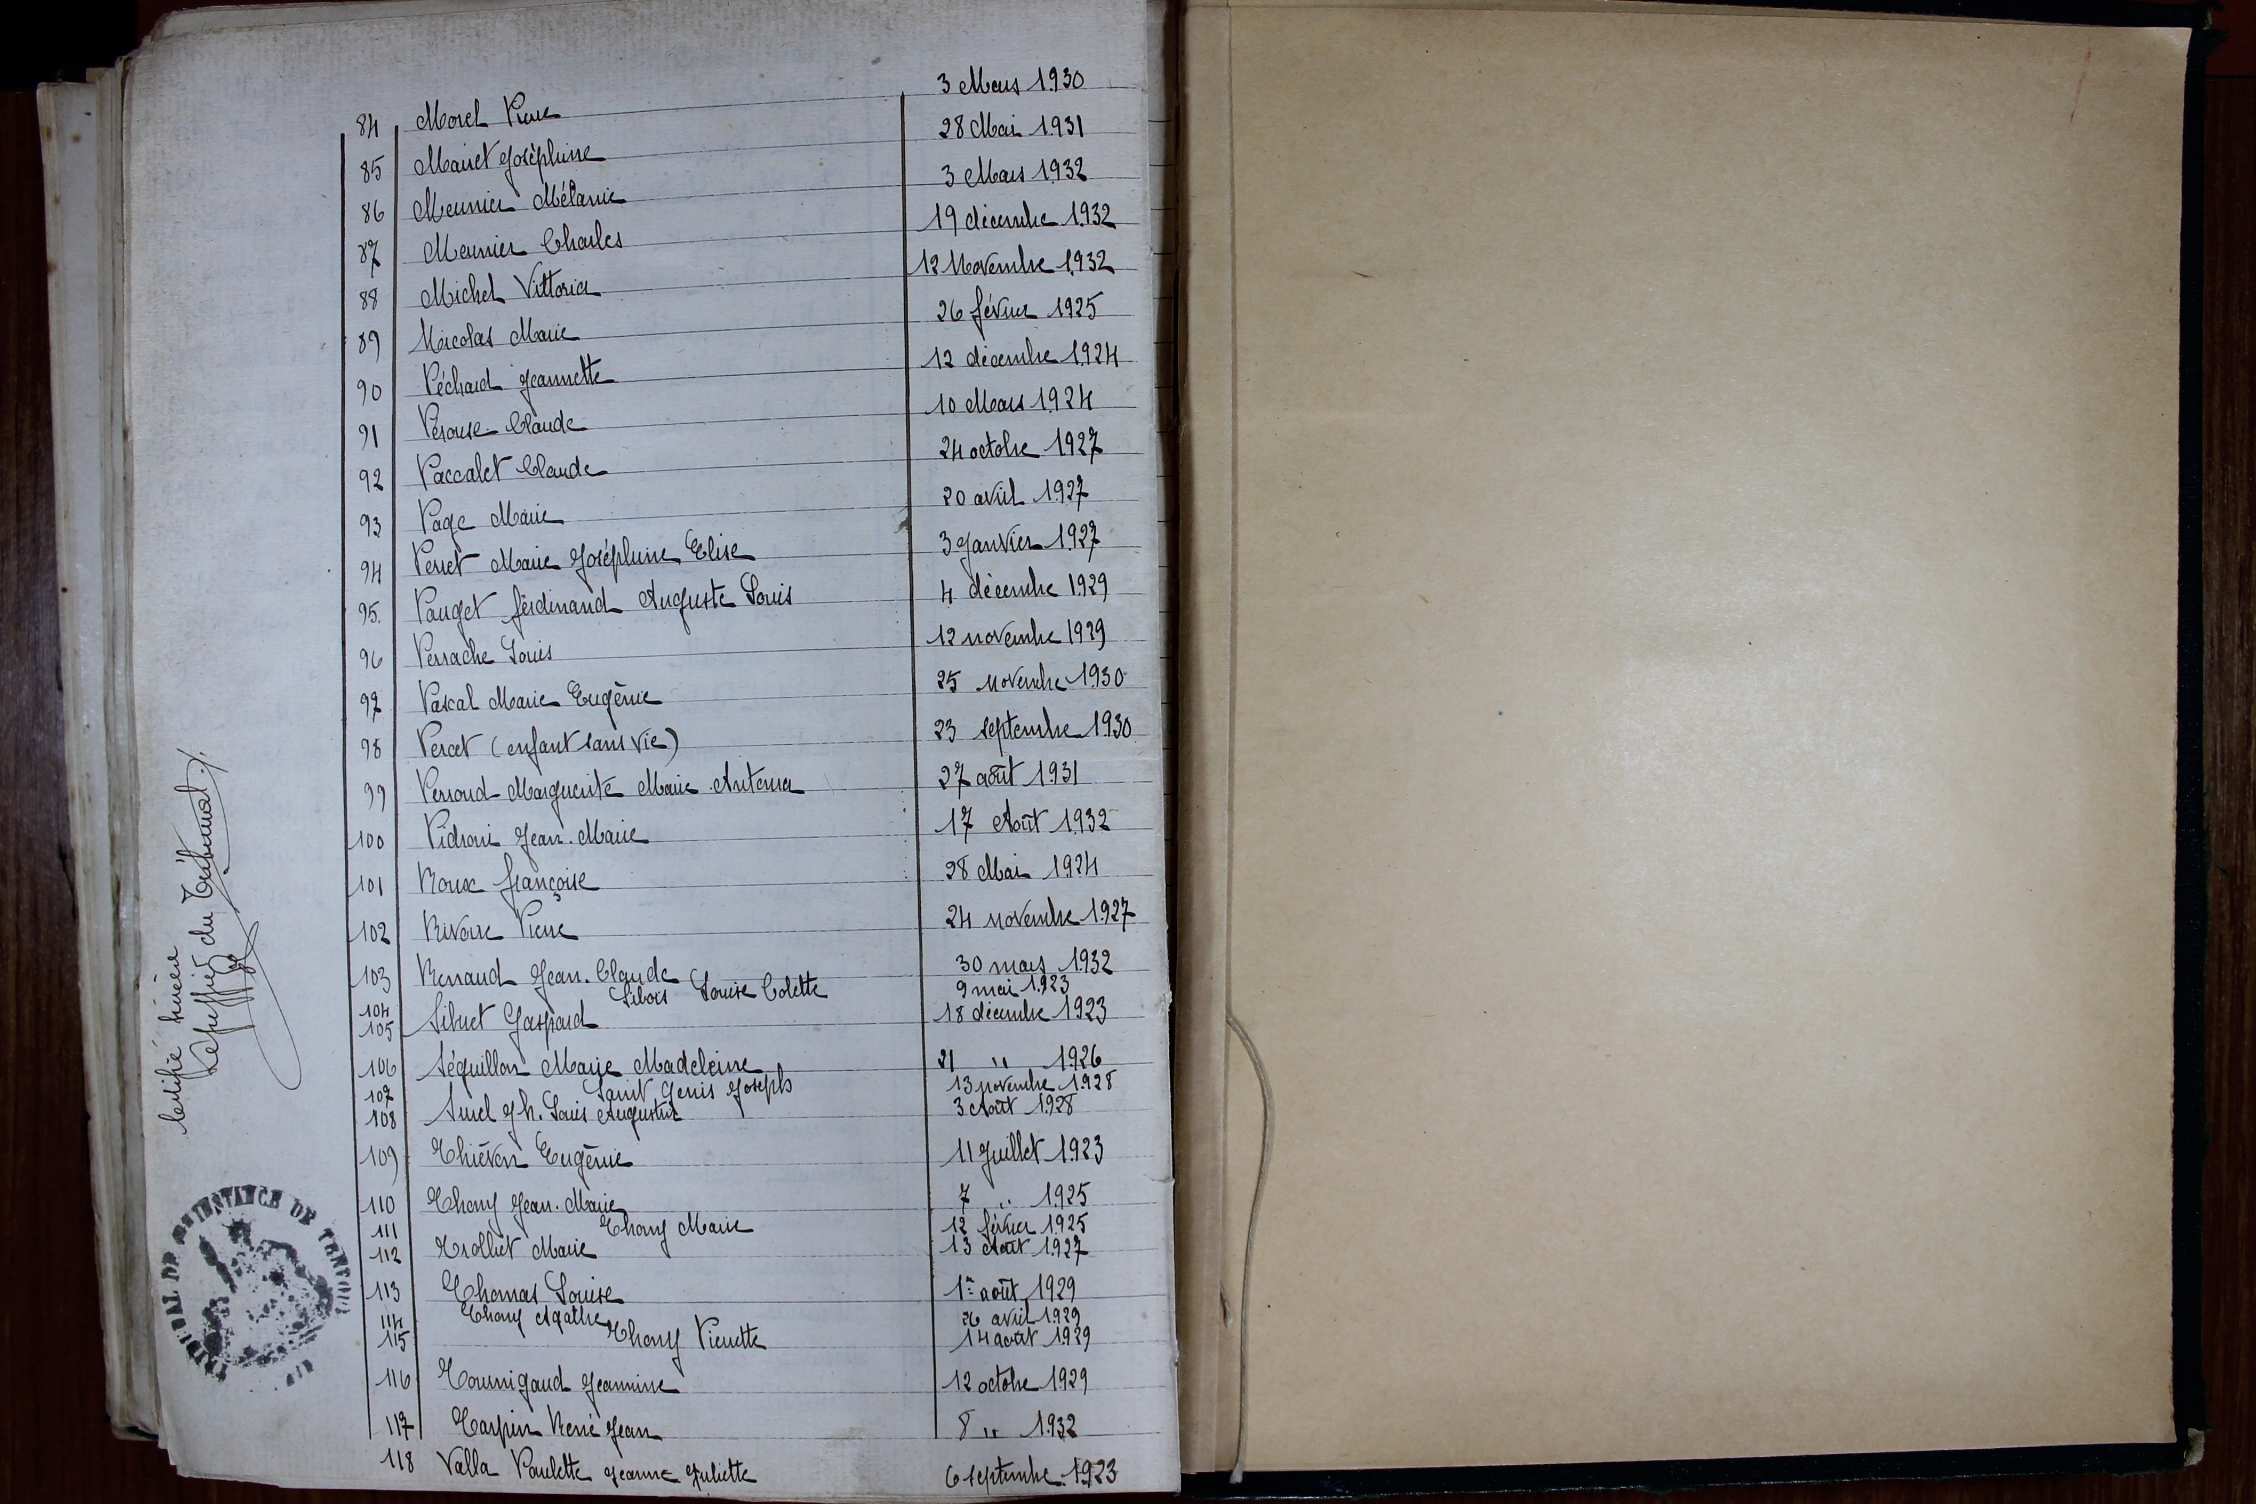 84 Morel Pierre 3 Mars 1930
85 Mairet Joséphine 28 Mai 1931
86 Meunier Mélanie 3 Mars 1932
87 Meunier Charles 19 décembre 1932
88 Michel Vittoria 12 Novembre 1932
89 Nicolas Marie 26 février 1925
90 Péchard Jeannette 12 décembre 1924
91 Perouse Claude 10 Mars 1924
92 Paccalet Claude 24 octobre 1927
93 Page Marie 20 avril 1927
94 Perret Marie Joséphine Elise 3 Janvier 1927
95. Pauget ferdinand Auguste Louis 4 décembre 1929
96 Perrache Louis 12 novembre 1929
97 Pascal Marie Eugènie 25 novembre 1930
98 Percet (enfant sans vie) 23 septembre 1930
99 Perroud Marguerite Marie Antonia 27 août 1931
100 Pidroni Jean-Marie 17 Août 1932
101 Roux françoise 28 Mai 1924
102 Rivoire Pierre 24 novembre 1927
103 Renaud Jean-Claude 30 mars 1932
104 Sibois Louise Colette 9 mai 1923
105 Sibuet Gaspard 18 décembre 1923
106 Séquillon Marie Madeleine 21 " 1926
107 Saint Genis Joseph 13 novembre 1928
108 Surel Jh. Louis Augustin 3 Août 1928
109 Thiévon Eugènie 11 Juillet 1923
110 Thony Jean-Marie 7 " 1925
111 Thony Marie 12 février 1925
112 Trolliet Marie 13 Août 1927
113 Thomas Louise 1er août 1929
114 Thony Agathe 26 avril 1929
115 Thony Pierrette 14 août 1929
116 Tournigaud Jeannine 12 octobre 1929
117 Taspin René Jean 8 " 1932
118 Valla Paulette Jeanne Juliette 6 septembre 1923
Certifié sincère
Le greffier du Tribunal
TRIBUNAL DE 1re INSTANCE DE TREVOUX